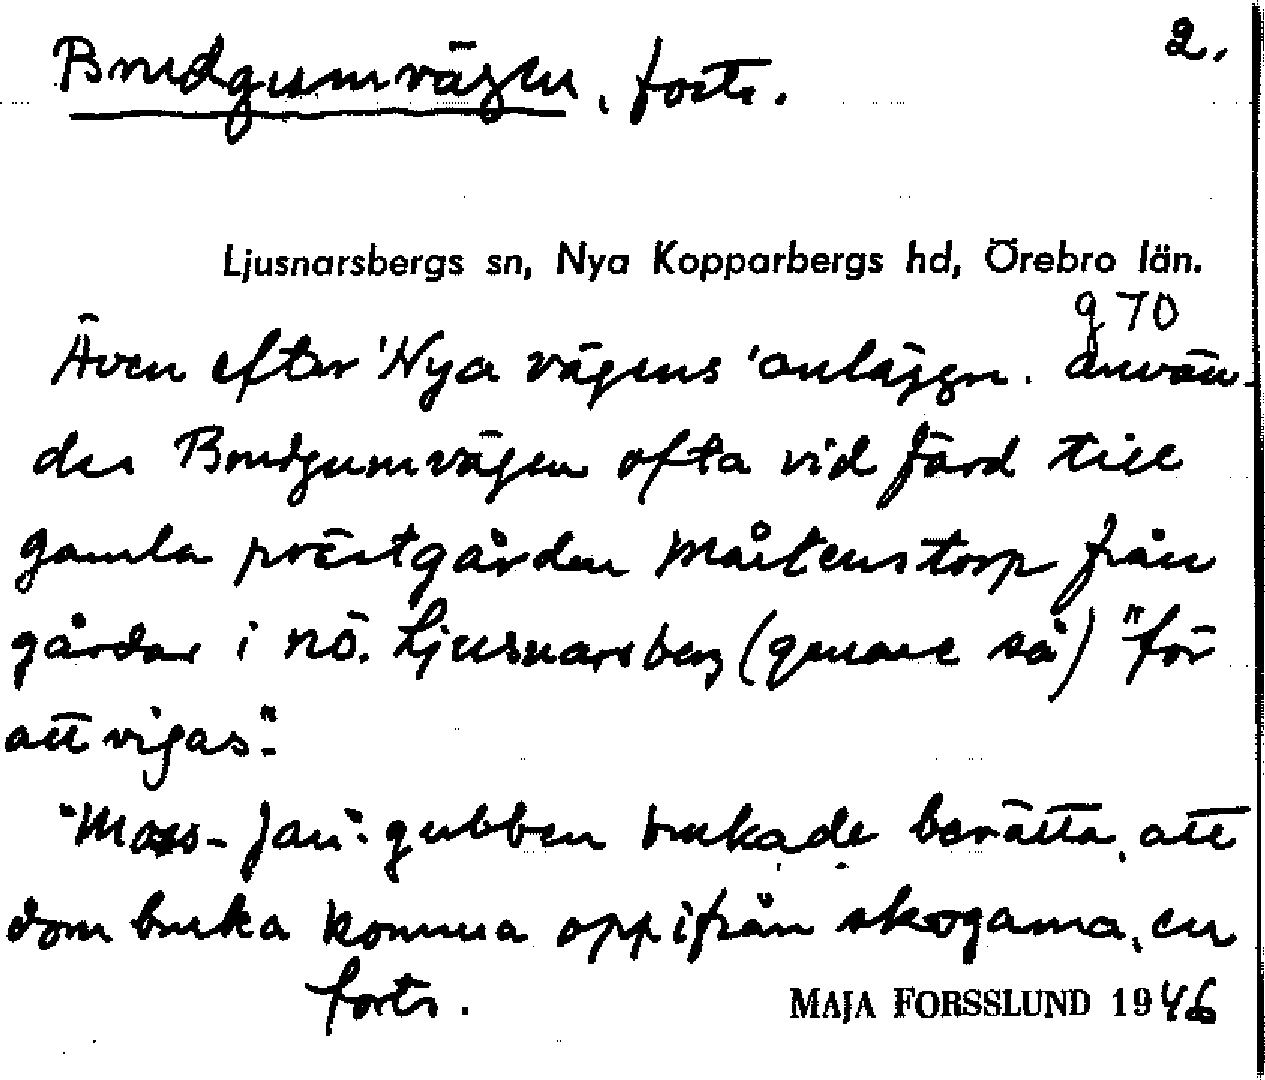 2.
Brudgumvägen, forts.
Ljusnarsbergs sn, Nya Kopparbergs hd, Örebro län.
g 70
Även efter 'Nya vägens' anläggn. använ-
des Brudgumvägen ofta vid färd till
gamla prästgården Mårtenstorp från
gårdar i nö. Ljusnarsberg (genare så) "för
att vigas".
"Moss-Jan"-gubben brukade berätta, att
dom bruka komma opp ifrån skogarna, en
forts.
MAJA FORSSLUND 1946